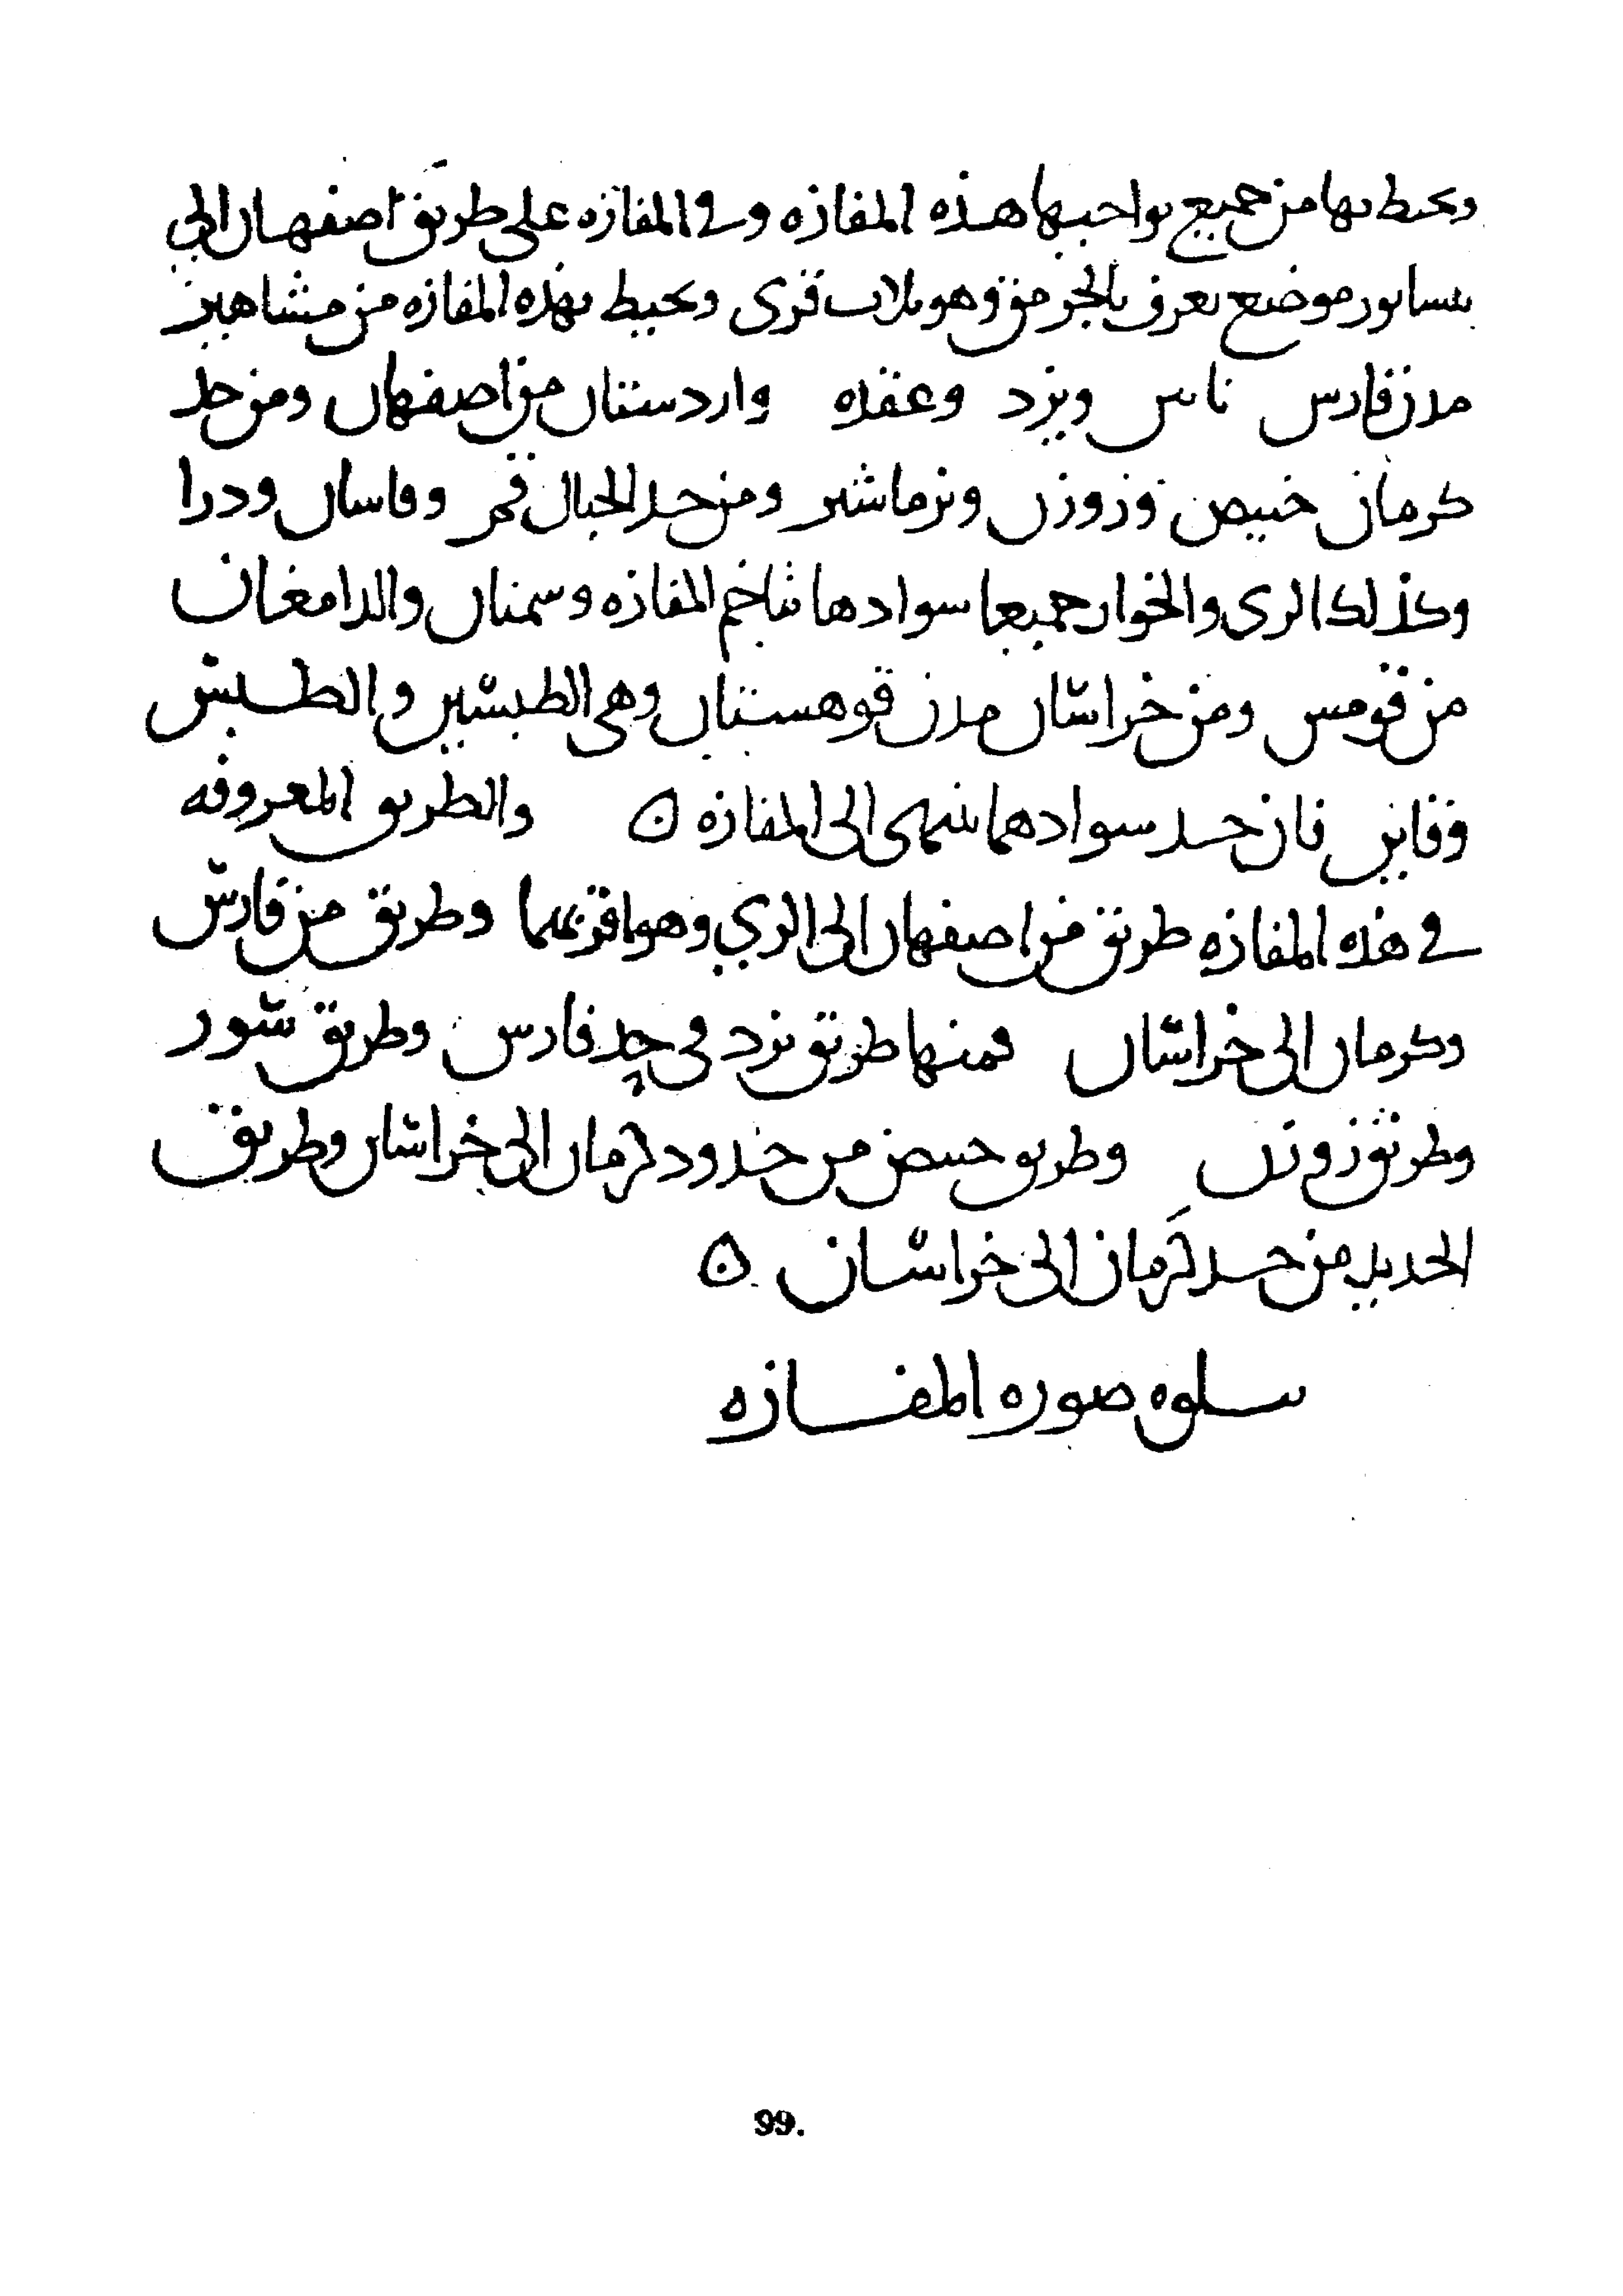 ويحيط بها من جميع نواحيها هذه المفازه وفى المفازه على طريق اصفهان الي
نيسابور موضع يعرف بالجرمق وهو ثلاث قرى ويحيط بهذه المفازه من مشاهير
مدن فارس ناىىں ويزد وعقده واردستان من اصفهان ومن حد
كرمان خبيص وزوزن ونرماشير ومن حد الجبال قم وقاسان ودرا
وكذلك الرى والخوار جميعا سوادها تتاخم المفازه وسمنان والدامغان
من قومس ومن خراسان مدن قوهستان وهى الطبسين والطبس
وقاين فان حد سوادهما ينتهى الى المفازه ه والطريق المعروفه
في هذه المفازه طريق من اصفهان الى الري وهو اقربهما وطريق من فارس
وكرمان الى خراسان فمنها طريق يزد في حد فارس وطريق شور
وطريق زوزن وطريق خبيص من حدود كرمان الى خراسان وطريق
الحديد من حد كرمان الى خراسان ه
يتلوه صوره المفازه
99.